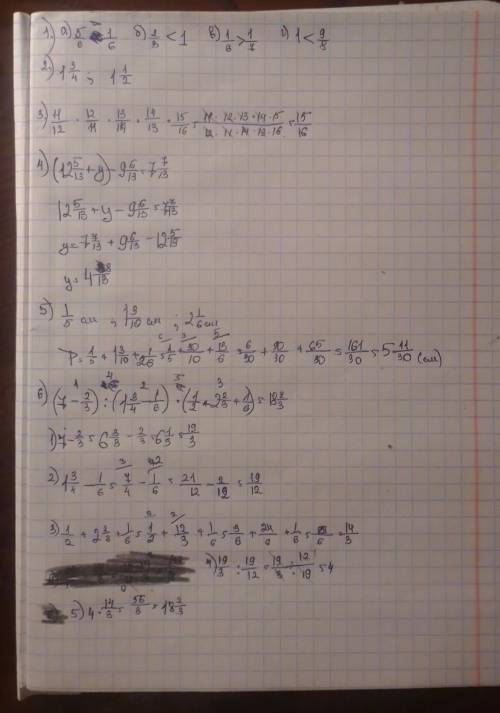 1) а) 5/6 > 1/6 б) 2/3 < 1 в) 1/8 > 1/7 г) 1 < 9/8
2) 1 3/4 ; 1 1/2
3) 11/12 · 12/11 · 13/14 · 14/13 · 15/16 = 11·12·13·14·15/12·11·14·13·16 = 15/16
4) (12 5/13 + y) - 9 6/13 = 7 7/13
12 5/13 + y - 9 6/13 = 7 7/13
y = 7 7/13 + 9 6/13 - 12 5/13
y = 4 8/13
5) 1/5 см ; 1 3/10 см ; 2 1/6 см
P = 1/5 + 1 3/10 + 2 1/6 = 1/5 + 30/10 + 13/6 = 6/30 + 90/30 + 65/30 = 161/30 = 5 11/30 (см)
6) (7 - 2/3) : (1 3/4 - 1/6) · (1/2 + 2 2/3 + 1/6) = 18 2/3
1) 7 - 2/3 = 6 3/3 - 2/3 = 6 1/3 = 19/3
2) 1 3/4 - 1/6 = 7/4 - 1/6 = 21/12 - 2/12 = 19/12
3) 1/2 + 2 2/3 + 1/6 = 1/2 + 12/3 + 1/6 = 3/6 + 24/6 + 1/6 = 14/3
4) 19/3 : 19/12 = 19·12/3·19 = 4
5) 4 · 14/3 = 56/3 = 18 2/3